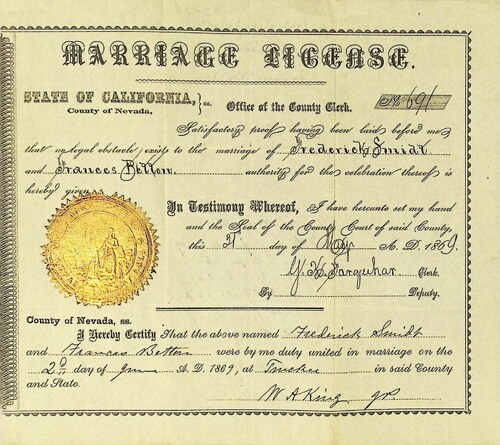 MARRIAGE LICENSE.
STATE OF CALIFORNIA, } ss.
County of Nevada,
Office of the County Clerk.
No 691
Satisfactory proof having been laid before me
that no legal obstacle exists to the marriage of Frederick Smidt
and Frances Betton authority for the celebration thereof is
hereby given.
In Testimony Whereof, I have hereunto set my hand
and the Seal of the County Court of said County,
this 31 day of May A. D. 1869.
Farquhar Clerk.
By Deputy.
County of Nevada, ss.
I Hereby Certify That the above named Frederick Smidt
and Frances Betton were by me duly united in marriage on the
2d day of June A. D. 1869, at Truckee in said County
and State.
W A King JP.